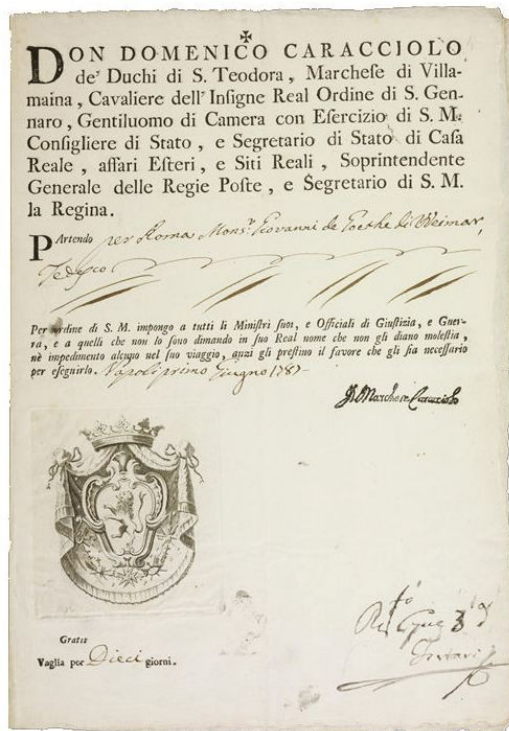 DON DOMENICO CARACCIOLO
de' Duchi di S. Teodora, Marcheſe di Villa-
maina, Cavaliere dell'Inſigne Real Ordine di S. Gen-
naro, Gentiluomo di Camera con Eſercizio di S. M.
Conſigliere di Stato, e Segretario di Stato di Caſa
Reale, affari Eſteri, e Siti Reali, Soprintendente
Generale delle Regie Poſte, e Segretario di S. M.
la Regina.
PArtendo per Roma Mons.r Giovanni de Goethe di Weimar,
Tedesco
Per ordine di S. M. impongo a tutti li Miniſtri ſuoi, e Officiali di Giuſtizia, e Guer-
ra, e a quelli che non lo ſono dimando in ſuo Real nome che non gli diano moleſtia,
nè impedimento alcuno nel ſuo viaggio, anzi gli preſtino il favore che gli ſia neceſſario
per eſeguirlo. Napoli primo Giugno 1787
Il Marchese Caracciolo
Gratis
Vaglia per Dieci giorni.